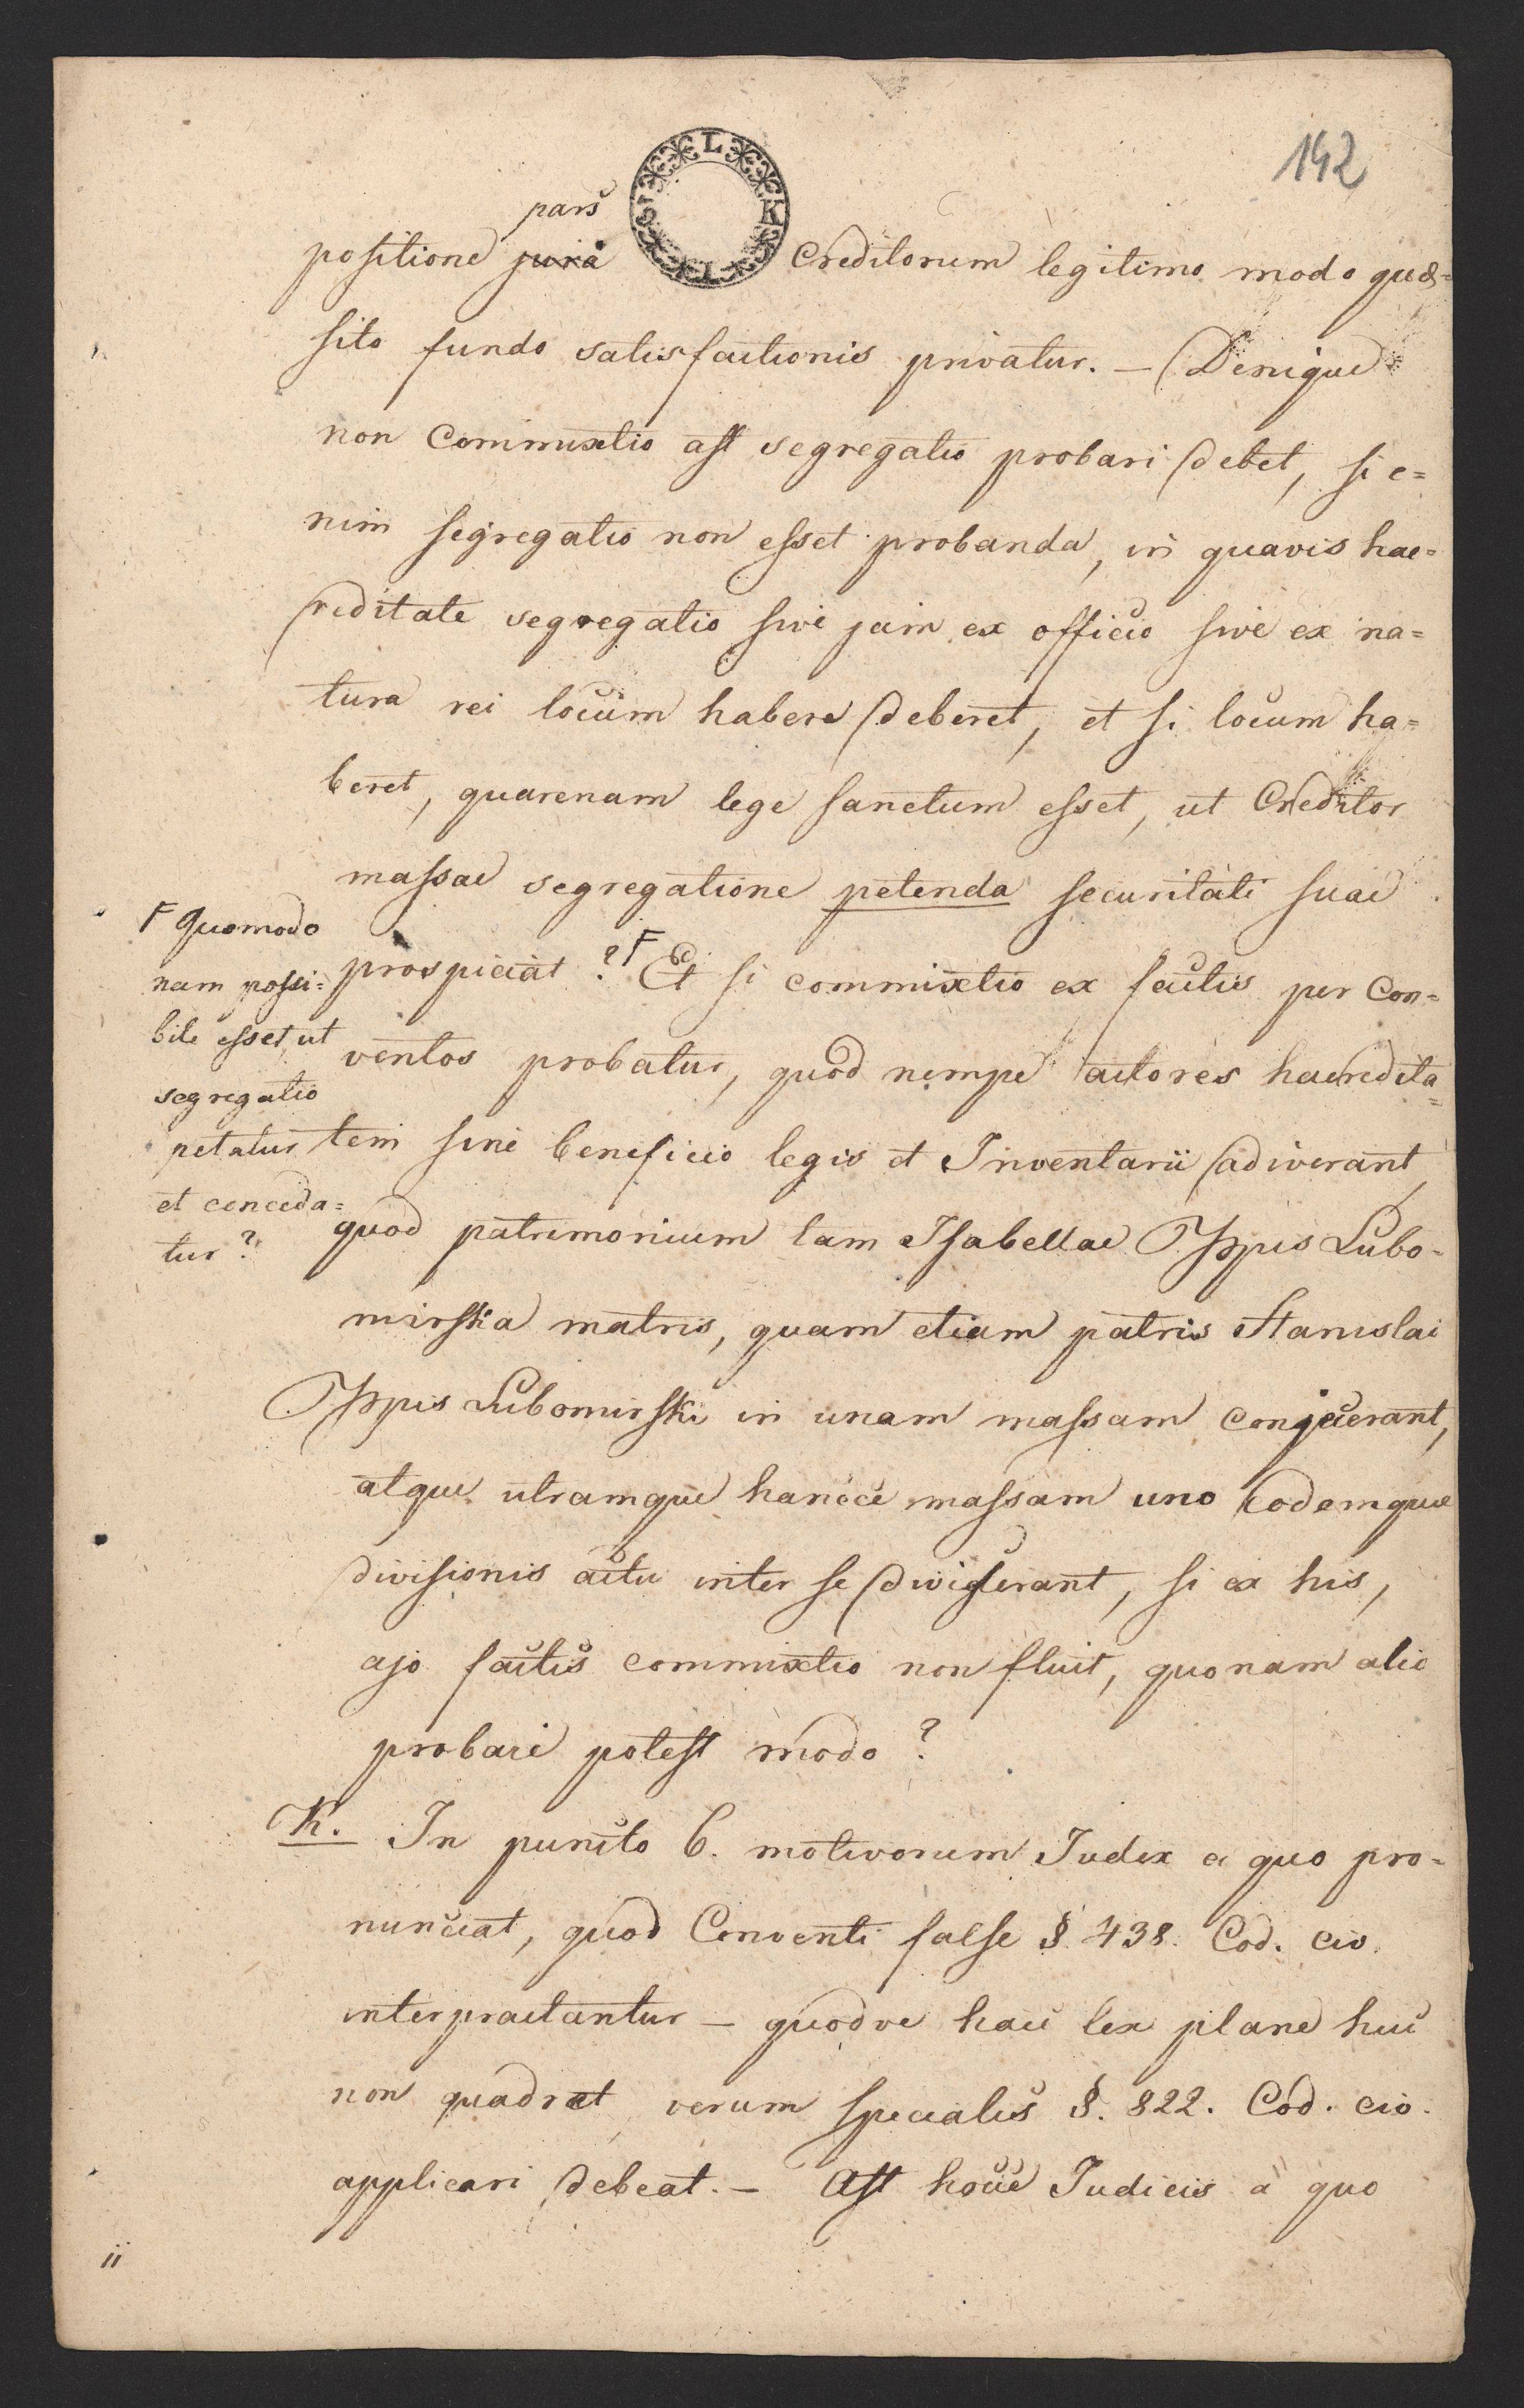 142
pars
positione jura Creditorum legitimo modo quæ=
sito fundo satisfactionis privatur. — Denique
non Commixtio ast segregatio probari debet, si e=
nim segregatio non esset probanda, in quavis hae=
reditate segregatio sive jam ex officio sive ex na=
tura rei locum habere deberet, et si locum ha=
beret, quarenam lege sanctum esset, ut Creditor
massae segregatione petenda securitati suae
prospiciat? F Et si commixtio ex factis per Con=
ventos probatur, quod nempe actores haeredita=
tem sine beneficio legis et Inventarii adiverant,
quod patrimonium tam Isabellae Ppis Lubo=
mirska matris, quam etiam patris Stanislai
Ppis Lubomirski in unam massam conjecerant,
atque utramque hancce massam uno eodemque
divisionis actu inter se diviserant, si ex his,
ajo factis commixtio non fluit, quonam alio
probari potest modo?
F Quomodo
nam possi=
bile esset, ut
segregatio
petatur
et conceda=
tur?
K. In puncto 6. motivorum Judex a quo pro=
nunciat, quod Conventi false §. 438. Cod. civ.
interpraetantur — quodve haec lex plane huc
non quadret, verum specialis §. 822. Cod. civ.
applicari debeat. — Ast hocce Judicis a quo
ii
L K I S